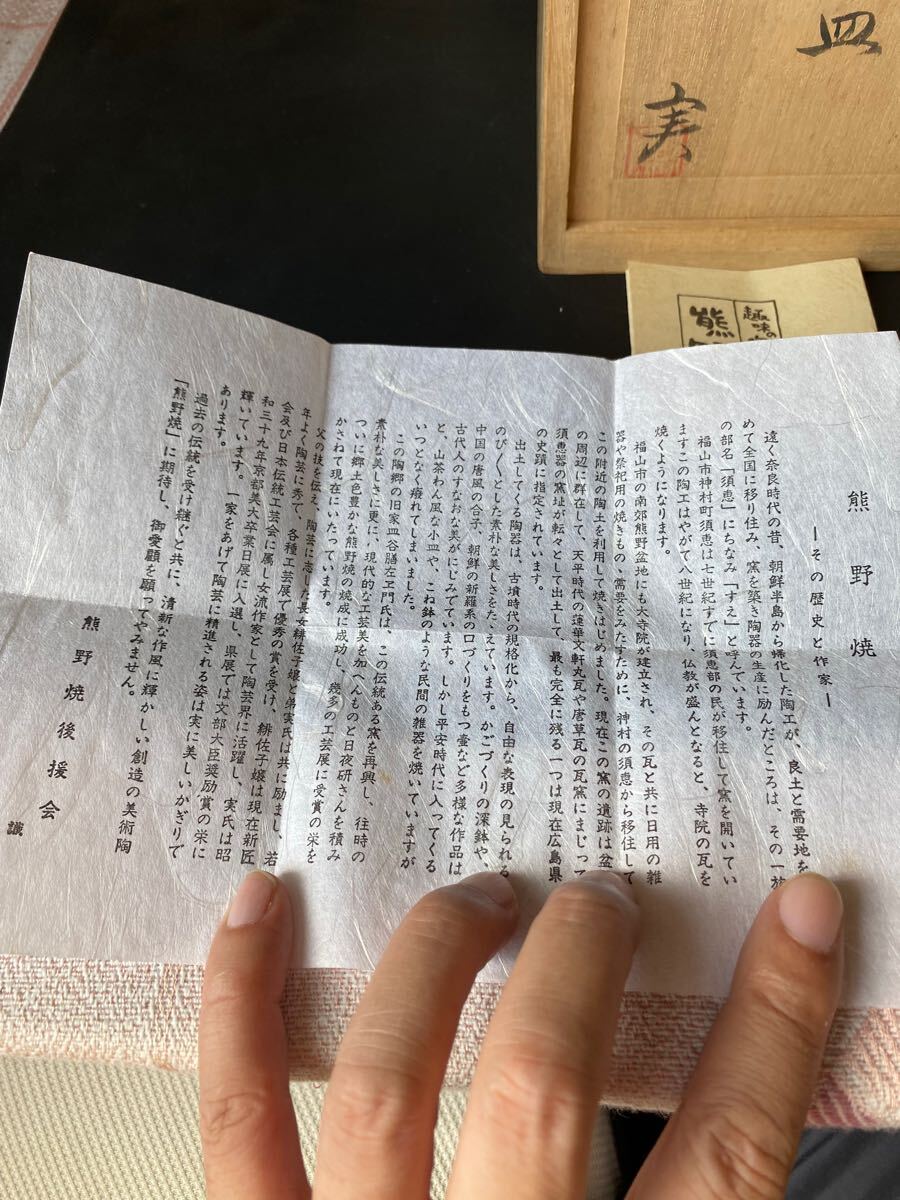 皿
実
趣味の
熊
熊野焼
―その歴史と作家―
遠く奈良時代の昔、朝鮮半島から帰化した陶工が、良土と需要地を
めて全国に移り住み、窯を築き陶器の生産に励んだところは、その一族
の部名「須恵」にちなみ「すえ」と呼んでいます。
福山市神村町須恵は七世紀すでに須恵部の民が移住して窯を開いてい
ますこの陶工はやがて八世紀になり、仏教が盛んとなると、寺院の瓦を
焼くようになります。
福山市の南郊熊野盆地にも大寺院が建立され、その瓦と共に日用の雑
器や祭祀用の焼きもの、需要をみたすために、神村の須恵から移住して
この附近の陶土を利用して焼きはじめました。現在この窯の遺跡は盆
の周辺に群在して、天平時代の蓮華文軒丸瓦や唐草瓦の瓦窯にまじって
須恵器の窯址が転々として出土して、最も完全に残る一つは現在広島県
の史蹟に指定されています。
出土してくる陶器は、古墳時代の規格化から、自由な表現の見られる
のび〱とした素朴な美しさをたゝえています。かごづくりの深鉢や、
中国の唐風の合子、朝鮮の新羅系の口づくりをもつ壷など多様な作品は
古代人のすなおな美がにじみてています。しかし平安時代に入ってくる
と、山茶わん風な小皿や、こね鉢のような民間の雑器を焼いていますが
いつとなく癈れてしまいました。
この陶郷の旧家皿谷膳左ヱ門氏は、この伝統ある窯を再興し、往時の
素朴な美しさに更に、現代的な工芸美を加へんものと日夜研さんを積み
ついに郷土色豊かな熊野焼の焼成に成功し、幾多の工芸展に受賞の栄を
かさねて現在にいたっています。
父の技を伝え、陶芸に志した長女緋佐子嬢と弟実氏は共に励まし、若
年よく陶芸に秀て、各種工芸展で優秀の賞を受け、緋佐子嬢は現在新匠
会及び日本伝統工芸会に属し女流作家として陶芸界に活躍し、実氏は昭
和三十九年京都美大卒業日展に入選し、県展では文部大臣奨励賞の栄に
輝いています。　一家をあげて陶芸に精進される姿は実に美しいかぎりで
あります。
過去の伝統を受け継ぐと共に、清新な作風に輝かしい創造の美術陶
「熊野焼」に期待し、御愛顧を願ってやみません。
熊野焼後援会
識